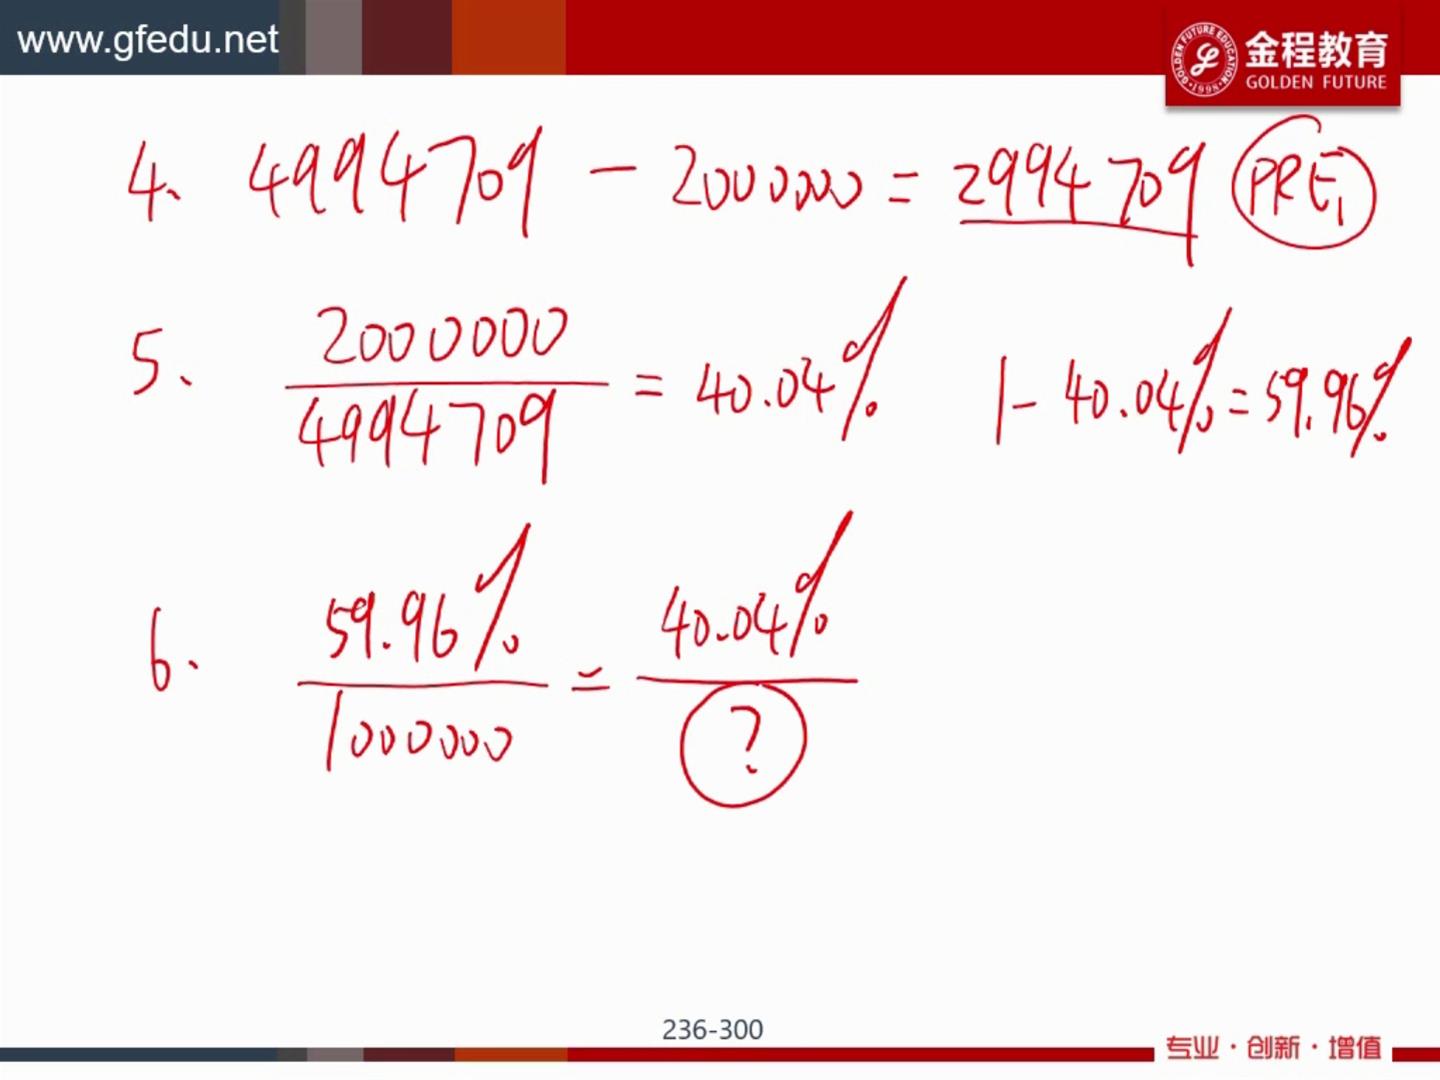 www.gfedu.net
GOLDEN FUTURE EDUCATION
1998
金程教育
GOLDEN FUTURE
4. 4994709 - 2000000 = 2994709 PRE₁
5. 2000000 / 4994709 = 40.04% 1 - 40.04% = 59.96%
6. 59.96% / 1000000 = 40.04% / ?
236-300
专业·创新·增值